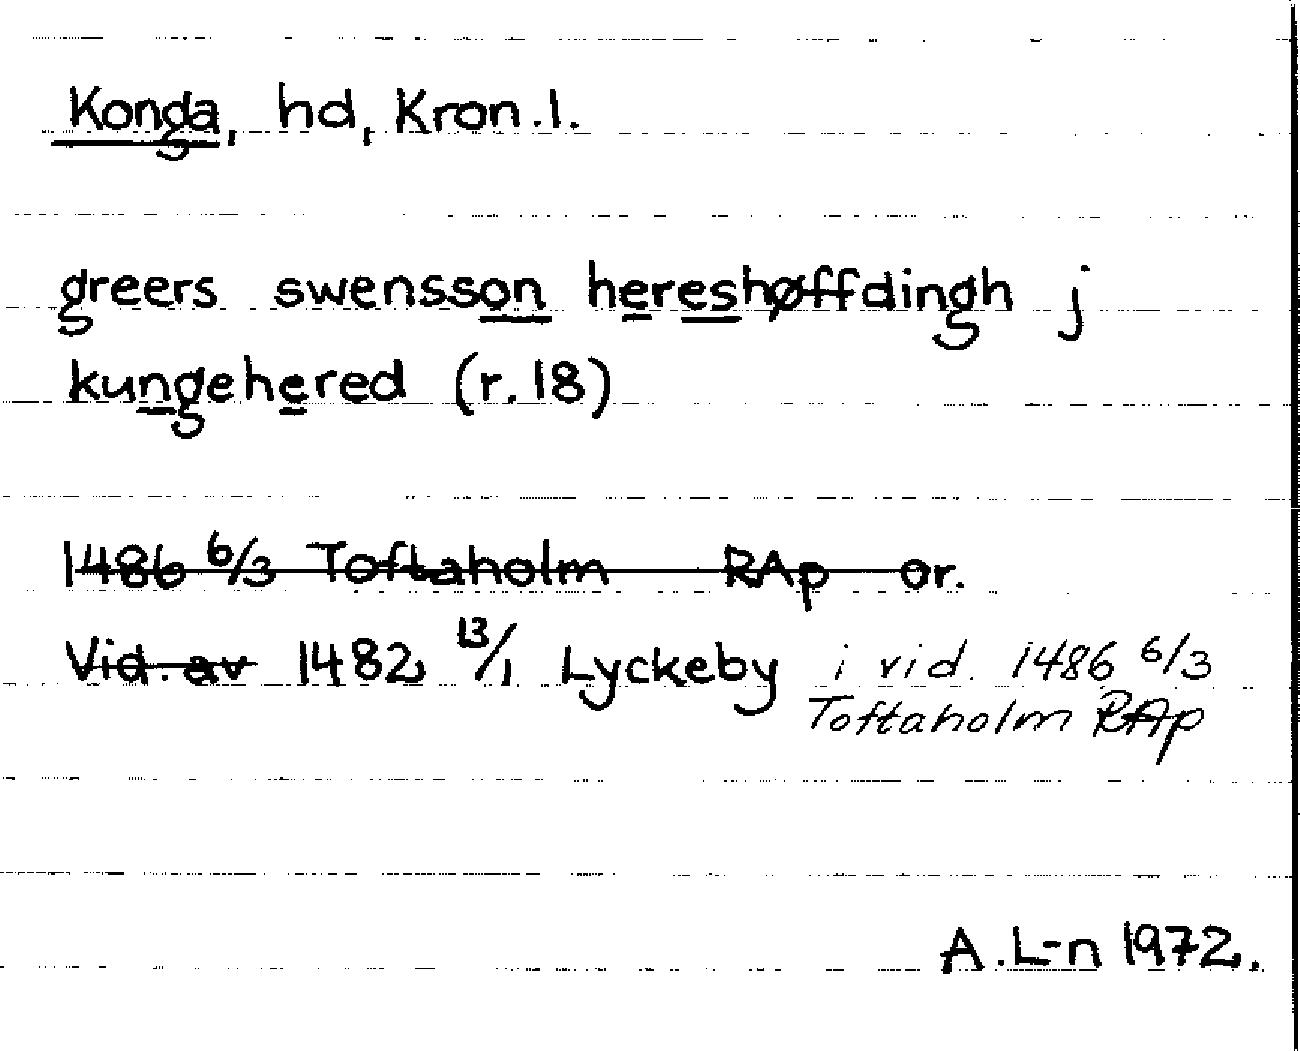 Konga, hd, Kron.l.
greers swensson hereshøffdingh j
kungehered (r.18)
1486 6/3 Toftaholm RAp or.
Vid. av 1482 13/1 Lyckeby i vid. 1486 6/3
Toftaholm RAp
A.L-n 1972.